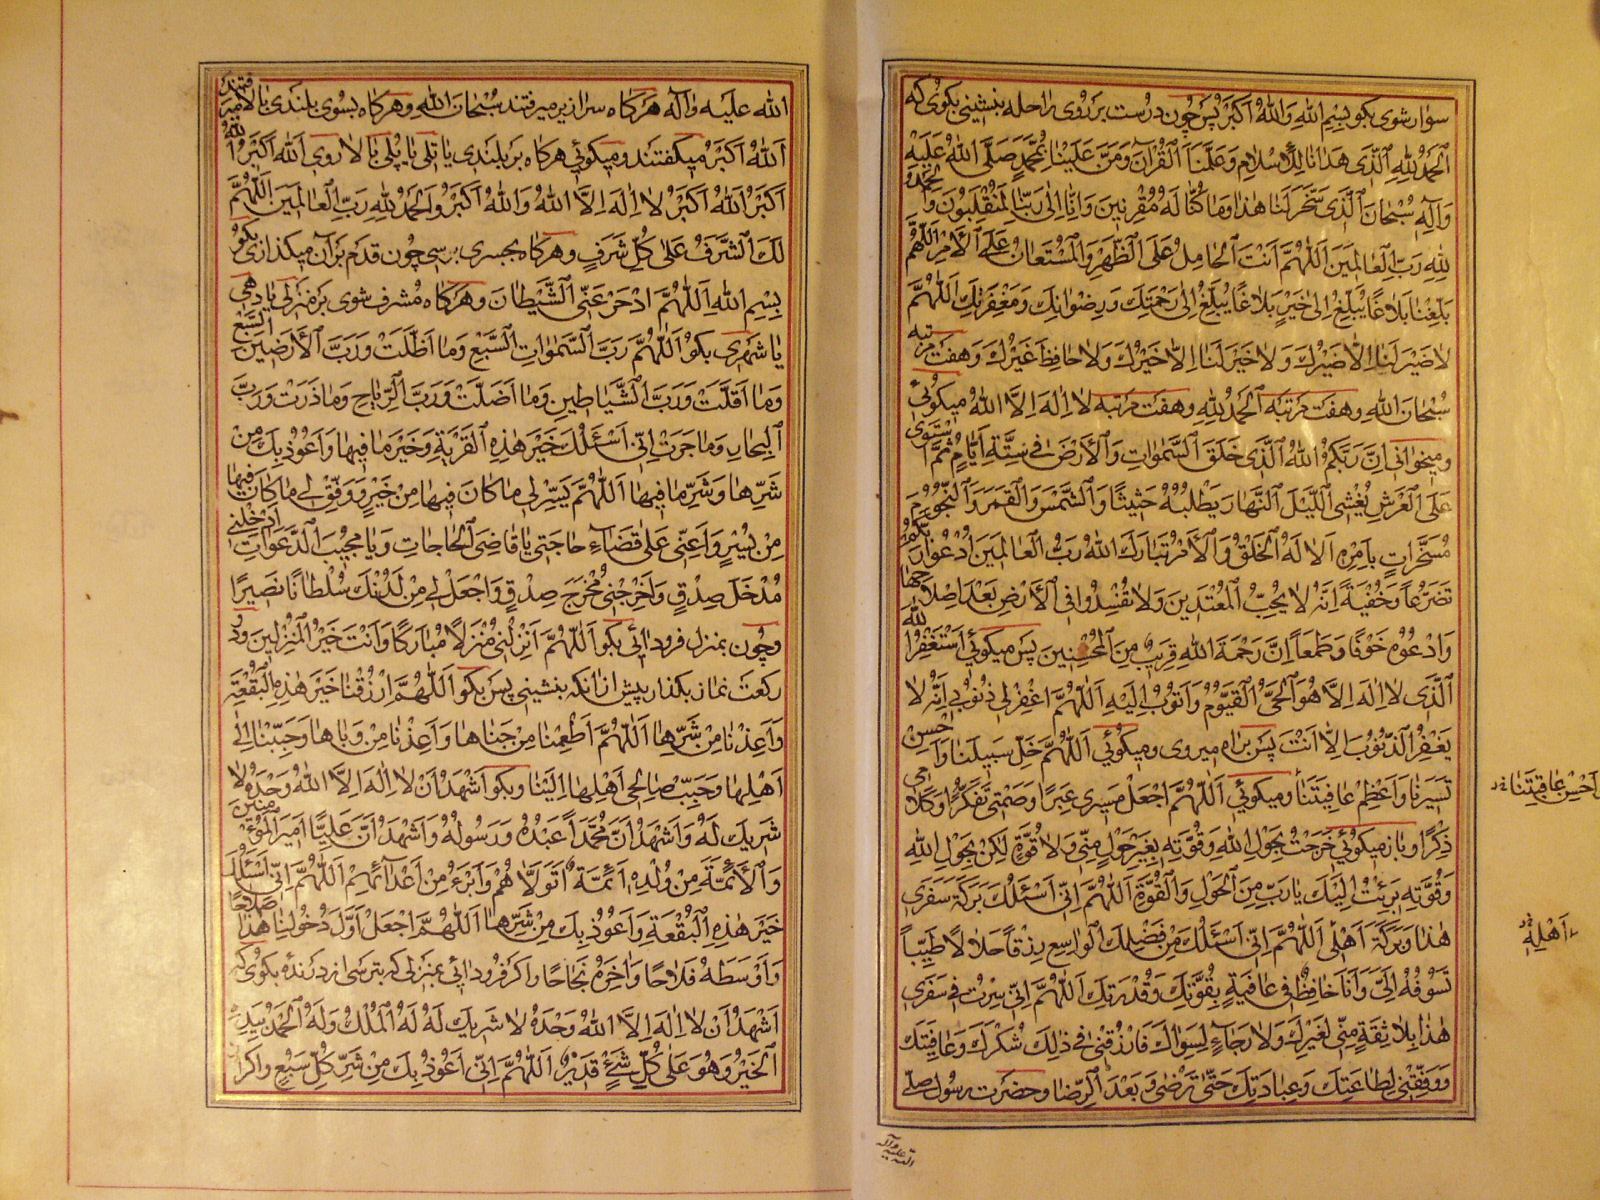 سوار شوی بکو بِسْمِ اللهِ وَاللهُ اَکْبَرُ پس چون درست بر روی راحله بنشینی بکوی که
اَلْحَمْدُ لِلّٰهِ الَّذی هَدانا لِلْاِسْلامِ وَعَلَّمَنَا الْقُرْآنَ وَمَنَّ عَلَیْنا بِمُحَمَّدٍ صَلَّی اللهُ عَلَیْهِ
وَآلِهِ سُبْحانَ الَّذی سَخَّرَ لَنا هٰذا وَما کُنّا لَهُ مُقْرِنینَ وَاِنّا اِلیٰ رَبِّنا لَمُنْقَلِبُونَ وَالْحَمْدُ
لِلّٰهِ رَبِّ الْعالَمینَ اَللّٰهُمَّ اَنْتَ الْحامِلُ عَلَی الظَّهْرِ وَالْمُسْتَعانُ عَلَی الْاَمْرِ اَللّٰهُمَّ
بَلِّغْنا بَلاغًا یُبَلِّغُ اِلیٰ خَیْرٍ بَلاغًا یُبَلِّغُ اِلیٰ رَحْمَتِکَ وَرِضْوانِکَ وَمَغْفِرَتِکَ اَللّٰهُمَّ
لا ضَیْرَ لَنا اِلّا ضَیْرُکَ وَلا خَیْرَ لَنا اِلّا خَیْرُکَ وَلا حافِظَ غَیْرُکَ وهفت مرتبه
سُبْحانَ اللهِ وهفت مرتبه اَلْحَمْدُ لِلّٰهِ وهفت مرتبه لا اِلٰهَ اِلَّا اللهُ میکوئی
ومیخوانی اِنَّ رَبَّکُمُ اللهُ الَّذی خَلَقَ السَّمٰواتِ وَالْاَرْضَ فی سِتَّةِ اَیّامٍ ثُمَّ اسْتَوی
عَلَی الْعَرْشِ یُغْشِی اللَّیْلَ النَّهارَ یَطْلُبُهُ حَثیثًا وَالشَّمْسَ وَالْقَمَرَ وَالنُّجُومَ
مُسَخَّراتٍ بِاَمْرِهِ اَلا لَهُ الْخَلْقُ وَالْاَمْرُ تَبارَکَ اللهُ رَبُّ الْعالَمینَ اُدْعُوا رَبَّکُمْ
تَضَرُّعاً وَخُفْیَةً اِنَّهُ لا یُحِبُّ الْمُعْتَدینَ وَلا تُفْسِدُوا فِی الْاَرْضِ بَعْدَ اِصْلاحِها
وَادْعُوهُ خَوْفًا وَطَمَعاً اِنَّ رَحْمَةَ اللهِ قَریبٌ مِنَ الْمُحْسِنینَ پس میکوئی اَسْتَغْفِرُ اللهَ
الَّذی لا اِلٰهَ اِلّا هُوَ الْحَیُّ الْقَیُّومُ وَاَتُوبُ اِلَیْهِ اَللّٰهُمَّ اغْفِرْ لی ذُنُوبی اِنَّهُ لا
یَغْفِرُ الذُّنُوبَ اِلّا اَنْتَ پس براه میروی ومیکوئی اَللّٰهُمَّ خَلِّ سَبیلَنا وَاَحْسِنْ
تَسْییرَنا وَاَعْظِمْ عافِیَتَنا ومیکوئی اَللّٰهُمَّ اجْعَلْ مَسیری عِبَرًا وَصَمْتی تَفَکُّرًا وَکَلامی
ذِکْرًا وباز میکوئی خَرَجْتُ بِحَوْلِ اللهِ وَقُوَّتِهِ بِغَیْرِ حَوْلٍ مِنّی وَلا قُوَّةٍ لٰکِنْ بِحَوْلِ اللهِ
وَقُوَّتِهِ بَرِئْتُ اِلَیْکَ یا رَبِّ مِنَ الْحَوْلِ وَالْقُوَّةِ اَللّٰهُمَّ اِنّی اَسْئَلُکَ بَرَکَةَ سَفَری
هٰذا وَبَرَکَةَ اَهْلی اَللّٰهُمَّ اِنّی اَسْئَلُکَ مِنْ فَضْلِکَ الْواسِعِ رِزْقاً حَلالًا طَیِّباً
تَسُوقُهُ اِلَیَّ وَاَنَا خافِضٌ فی عافِیَةٍ بِقُوَّتِکَ وَقُدْرَتِکَ اَللّٰهُمَّ اِنّی سِرْتُ فی سَفَری
هٰذا بِلا ثِقَةٍ مِنّی لِغَیْرِکَ وَلا رَجاءٍ لِسِواکَ فَارْزُقْنی فی ذٰلِکَ شُکْرَکَ وَعافِیَتَکَ
وَوَفِّقْنی لِطاعَتِکَ وَعِبادَتِکَ حَتّیٰ تَرْضیٰ وَبَعْدَ الرِّضا وحضرت رسول صلّی
الله علیه وآله
اَحْسِنْ عاقِبَتَنا
اَهْلِهِ
الله علیه وآله هرکاه سرازیر میرفتند سُبْحانَ اللهِ وهرکاه بسوی بلندی بالا میرفتند
اَللهُ اَکْبَرُ میکفتند ومیکوئی هرکاه بر بلندی یا تلی یا پلی بالا روی اَللهُ اَکْبَرُ اَللهُ
اَکْبَرُ اَللهُ اَکْبَرُ لا اِلٰهَ اِلَّا اللهُ وَاللهُ اَکْبَرُ وَالْحَمْدُ لِلّٰهِ رَبِّ الْعالَمینَ اَللّٰهُمَّ
لَکَ الشَّرَفُ عَلیٰ کُلِّ شَرَفٍ وهرکاه بجسری برسی چون قدم بر آن میکذاری بکو
بِسْمِ اللهِ اَللّٰهُمَّ ادْحَرْ عَنِّی الشَّیْطانَ وهرکاه مشرف شوی بر منزلی یا دهی
یا شهری بکو اَللّٰهُمَّ رَبَّ السَّمٰواتِ السَّبْعِ وَما اَظَلَّتْ وَرَبَّ الْاَرَضینَ السَّبْعِ
وَما اَقَلَّتْ وَرَبَّ الشَّیاطینِ وَما اَضَلَّتْ وَرَبَّ الرِّیاحِ وَما ذَرَتْ وَرَبَّ
الْبِحارِ وَما جَرَتْ اِنّی اَسْئَلُکَ خَیْرَ هٰذِهِ الْقَرْیَةِ وَخَیْرَ ما فیها وَاَعُوذُ بِکَ مِنْ
شَرِّها وَشَرِّ ما فیها اَللّٰهُمَّ یَسِّرْ لی ما کانَ فیها مِنْ خَیْرٍ وَوَفِّقْ لی ما کانَ فیها
مِنْ یُسْرٍ وَاَعِنّی عَلیٰ قَضاءِ حاجَتی یا قاضِیَ الْحاجاتِ وَیا مُجیبَ الدَّعَواتِ اَدْخِلْنی
مُدْخَلَ صِدْقٍ وَاَخْرِجْنی مُخْرَجَ صِدْقٍ وَاجْعَلْ لی مِنْ لَدُنْکَ سُلْطانًا نَصیرًا
وچون بمنزل فرود ائی بکو اَللّٰهُمَّ اَنْزِلْنی مُنْزَلًا مُبارَکًا وَاَنْتَ خَیْرُ الْمُنْزِلینَ ودو
رکعت نماز بکذار پیش از انکه بنشینی پس بکو اَللّٰهُمَّ ارْزُقْنا خَیْرَ هٰذِهِ الْبُقْعَةِ
وَاَعِذْنا مِنْ شَرِّها اَللّٰهُمَّ اَطْعِمْنا مِنْ جَناها وَاَعِذْنا مِنْ وَباها وَحَبِّبْنا اِلیٰ
اَهْلِها وَحَبِّبْ صالِحی اَهْلِها اِلَیْنا وبکو اَشْهَدُ اَنْ لا اِلٰهَ اِلَّا اللهُ وَحْدَهُ لا
شَریکَ لَهُ وَاَشْهَدُ اَنَّ مُحَمَّداً عَبْدُهُ وَرَسُولُهُ وَاَشْهَدُ اَنَّ عَلِیًّا اَمیرَ الْمُؤْمِنینَ
وَالْاَئِمَّةَ مِنْ وُلْدِهِ اَئِمَّةٌ اَتَوَلّاهُمْ وَاَبْرَءُ مِنْ اَعْدائِهِمْ اَللّٰهُمَّ اِنّی اَسْئَلُکَ
خَیْرَ هٰذِهِ الْبُقْعَةِ وَاَعُوذُ بِکَ مِنْ شَرِّها اَللّٰهُمَّ اجْعَلْ اَوَّلَ دُخُولِنا هٰذا صَلاحًا
وَاَوْسَطَهُ فَلاحًا وَآخِرَهُ نَجاحًا واکر فرود ائی بمنزلی که بترسی از درنده بکوی که
اَشْهَدُ اَنْ لا اِلٰهَ اِلَّا اللهُ وَحْدَهُ لا شَریکَ لَهُ لَهُ الْمُلْکُ وَلَهُ الْحَمْدُ بِیَدِهِ
الْخَیْرُ وَهُوَ عَلیٰ کُلِّ شَیْءٍ قَدیرٌ اَللّٰهُمَّ اِنّی اَعُوذُ بِکَ مِنْ شَرِّ کُلِّ سَبُعٍ واکر